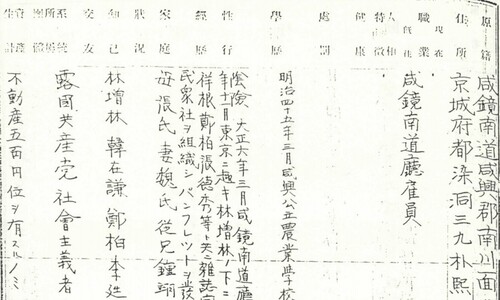 原籍 咸鏡南道咸興郡南川面
住所 現在 京城府都染洞三九朴熙
職業 現在 咸鏡南道廳雇員
人相特徵
健康
處罰
學歷 明治四十五年三月咸興公立農業學校
性行 陰險
經歷 大正六年三月咸鏡南道廳
年十一月東京ニ趣キ林增林ノ下ニ
祥根鄭柏張德秀等ト共ニ雜誌
民衆社ヲ組織シパンフレットヲ發
家庭狀況 母張氏妻魏氏從兄鍾翊
知己交友 林增林 韓在謙 鄭柏 李廷
系統所屬 露國共産党 社會主義者
資産生計 不動産五百円位ヲ有スルノミ